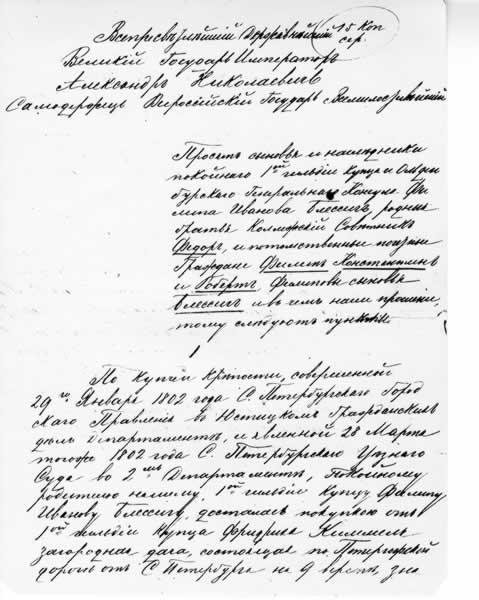 Всепресвѣтлѣйшій Державнѣйшій
15 Коп
сер.
Великій Государь Императоръ
Александръ Николаевичъ
Самодержецъ Всероссійскій Государь Всемилостивѣйшій
Просятъ сыновья и наслѣдники
покойнаго 1ой гильдіи купца и Ольден
бургскаго Генеральнаго Консула Фи
липа Иванова Блессигъ, родные
братья Коллежскій Совѣтникъ
Федоръ, и потомственные почетные
Граждане Филиппъ, Константинъ
и Робертъ, Филиповы сыновья
Блессигъ а въ чемъ наше прошеніе,
тому слѣдуютъ пункты:
1
По купчей крѣпости, совершенной
29го Января 1802 года С. Петербургскаго Город
скаго Правленія въ Юстицкомъ Гражданскихъ
дѣлъ Департаментѣ, и явленной 28 Марта
тогоже 1802 года С. Петербургскаго Уѣзднаго
Суда во 2мъ Департаментѣ, покойному
родителю нашему, 1ой гильдіи купцу Филипу
Иванову Блессигъ, досталась покупкою отъ
1ой гильдіи купца Фридриха Киммель
загородная дача, состоящая по Петергофской
дорогѣ отъ С. Петербурга на 9 верстѣ, зна